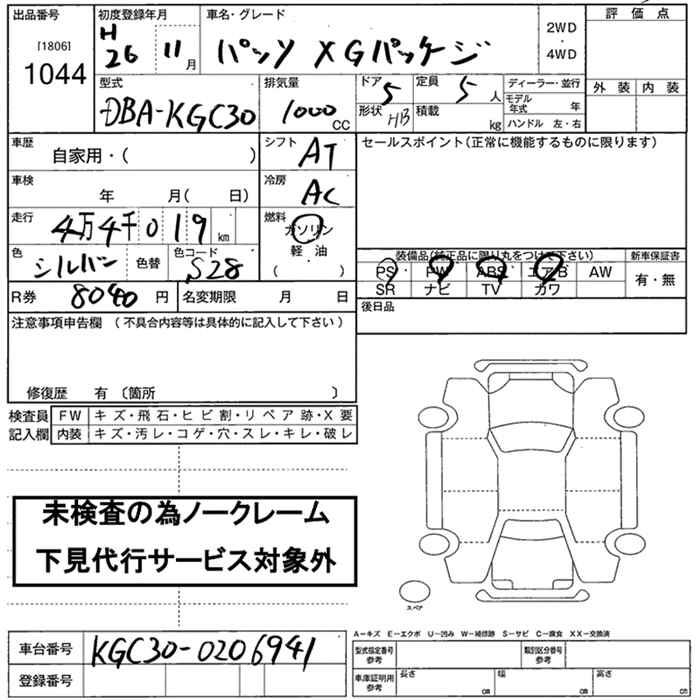 出品番号 初度登録年月 車名・グレード 評価点
[1806] H 26 11月 パッソ XGパッケージ 2WD・4WD
1044
型式 排気量 ドア 5 定員 5人 ディーラー・並行 外装 内装
DBA-KGC30 1000CC 形状 HB 積載 kg モデル年式 年
ハンドル 左・右
車歴 自家用・( ) シフト AT セールスポイント(正常に機能するものに限ります)
車検 年 月( 日) 冷房 AC
走行 4万4千019km 燃料 ガソリン
軽・油
( )
色 シルバー 色替 色コード S28 装備品(純正品に限り丸をつけて下さい) 新車保証書
PS PW ABS エアB AW 有・無
SR ナビ TV カワ
R券 8040円 名変期限 月 日 後日品
注意事項申告欄 (不具合内容等は具体的に記入して下さい)
修復歴 有 〔箇所 〕
検査員 FW キズ・飛石・ヒビ割・リペア跡・X要
記入欄 内装 キズ・汚レ・コゲ・穴・スレ・キレ・破レ
未検査の為ノークレーム
下見代行サービス対象外
スペア
A-キズ E-エクボ U-凹み W-補修跡 S-サビ C-腐食 XX-交換済
車台番号 KGC30-0206941 型式指定番号 参考 類別区分番号 参考
登録番号 車庫証明用 参考 長さ cm 幅 cm 高さ cm